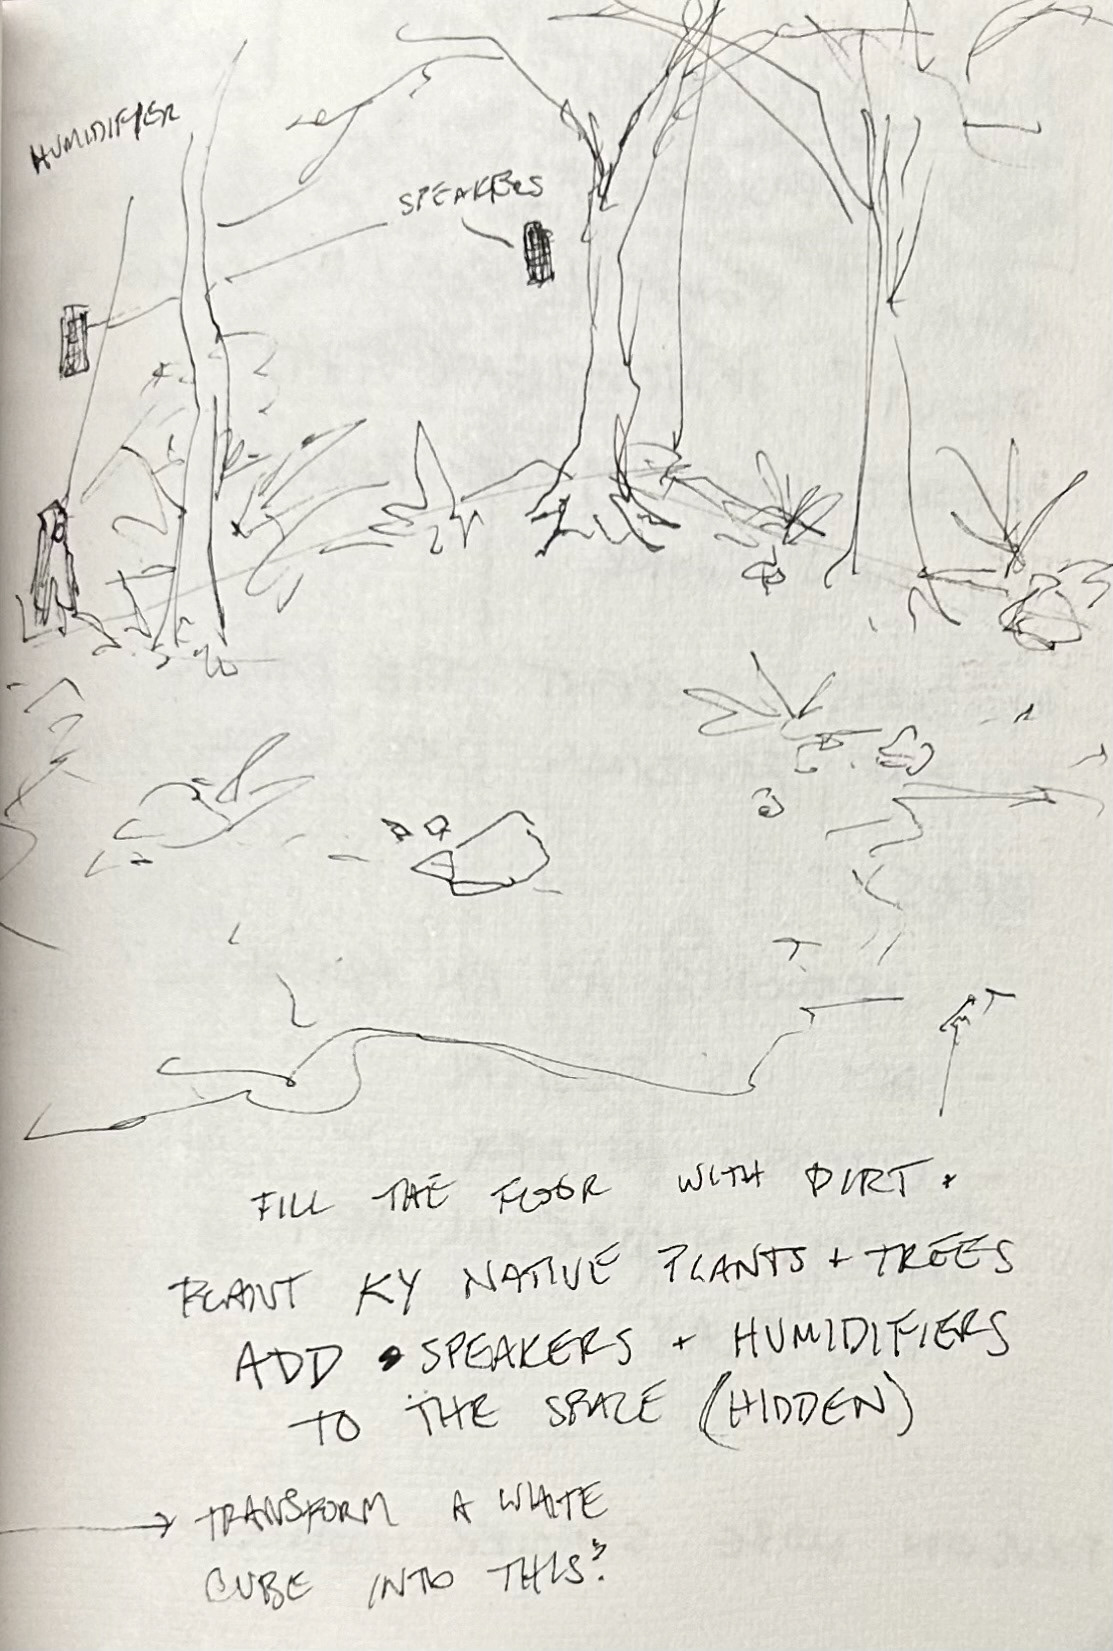 HUMIDIFIER
SPEAKERS
FILL THE FLOOR WITH DIRT +
PLANT KY NATIVE PLANTS + TREES
ADD SPEAKERS + HUMIDIFIERS
TO THE SPACE (HIDDEN)
→ TRANSFORM A WHITE
CUBE INTO THIS?